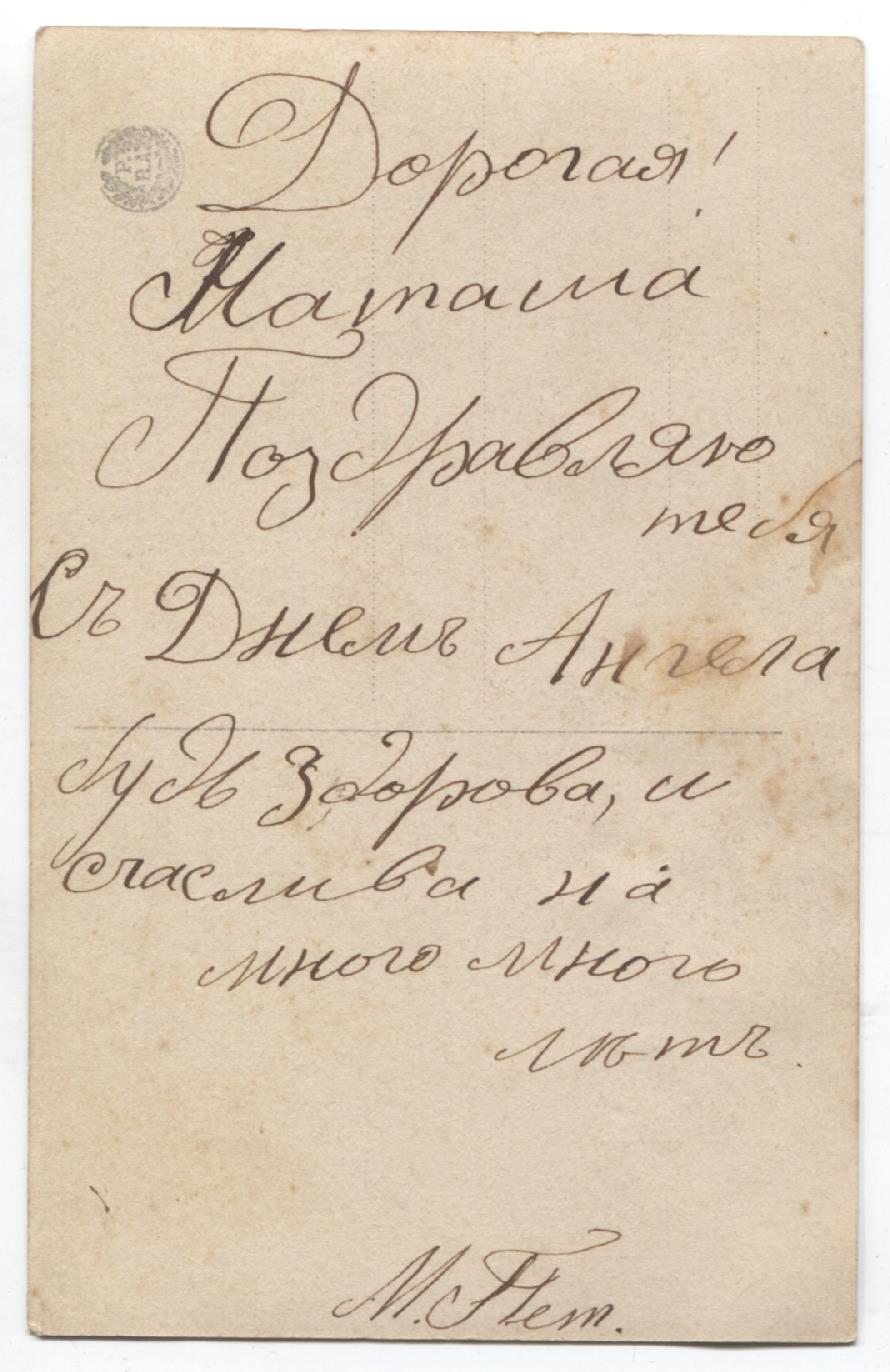 Дорогая!
Наташа
Поздравляю
тебя
Съ Днемъ Ангела
будь здорова, и
счаслива на
много много
лѣтъ.
М. Пет.